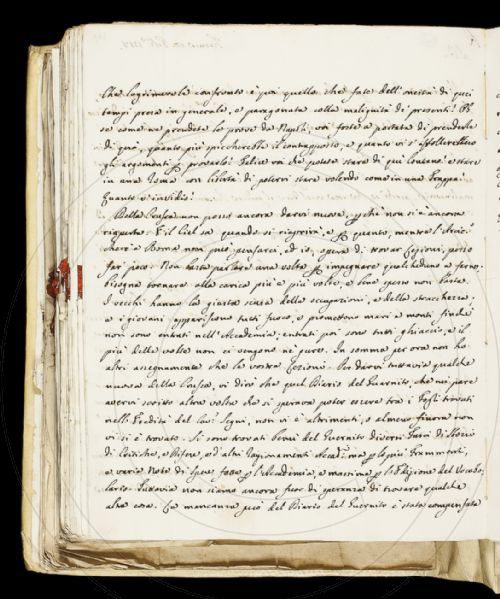 Che lagrimevole confronto è poi quello che fate dell'onestà di quei
tempi presa in generale, e paragonata colla malignità de' presenti! E
se come ne prendete le prove da Napoli, voi foste a portata di prenderle
di quà, quanto più spiccherebbe il contrapposto, e quanto vi s'affollerebbero
gli argomenti per provarlo! Felice voi che potete stare di più lontano, e stare
in una Roma con libertà di potervi stare volendo come in una Trappa!
Quanto v'invidio!
Della Crusca non posso ancora darvi nuove, perchè non si è ancora
riaperta. E il Ciel sa quando si riaprirà, e per quanto, mentre l'Arici-
a Roma non può pensarci, ed io, opera di trovar Lezioni, posso
far poco. Non basta parlare una volta per impegnare qualcheduno a farne,
bisogna tornare alla carica più e più volte, e bene spesso non basta.
I vecchi hanno la giusta scusa delle occupazioni, e della stracchezza,
e i giovani appariscono tutti fuoco, e promettono mari e monti finchè
non sono entrati nell'Accademia; entrati poi sono tutti ghiaccio, e il
più delle volte non ci vengono nè pure. In somma per ora non ho
altri assegnamenti che la vostra Lezione. Per darvi tuttavia qualche
nuova della Crusca, vi dirò che quel Diario del Guernito, che mi pare
avervi scritto altra volta che si sperava poter essere tra i Fogli trovati
nell'Eredità del Can. Segni, non vi è altrimenti, o almeno finora non
vi si è trovato. Si sono trovati bensì del Guernito diversi
di Critiche, e Difese, ed altri Ragionamenti Accad. ma per lo più frammenti,
e varie Note di Spese fatte per l'Accademia, e massime per l'Edizione del Vocabo-
lario. Tuttavia non siamo ancora fuor di speranza di trovare qualche
altra cosa. La mancanza però del Diario del Guernito è stata compensata